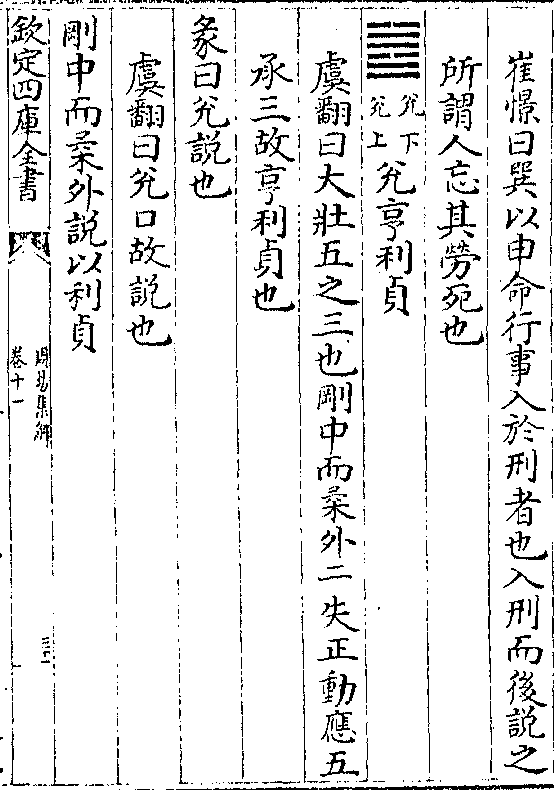 崔憬曰巽以申命行事入於刑者也入刑而後說之
所謂人忘其勞死也
䷹兊下兊上兊亨利貞
虞翻曰大壯五之三也剛中而柔外二失正動應五
承三故亨利貞也
彖曰兊說也
虞翻曰兊口故說也
剛中而柔外說以利貞
欽定四庫全書
周易集解
卷十一